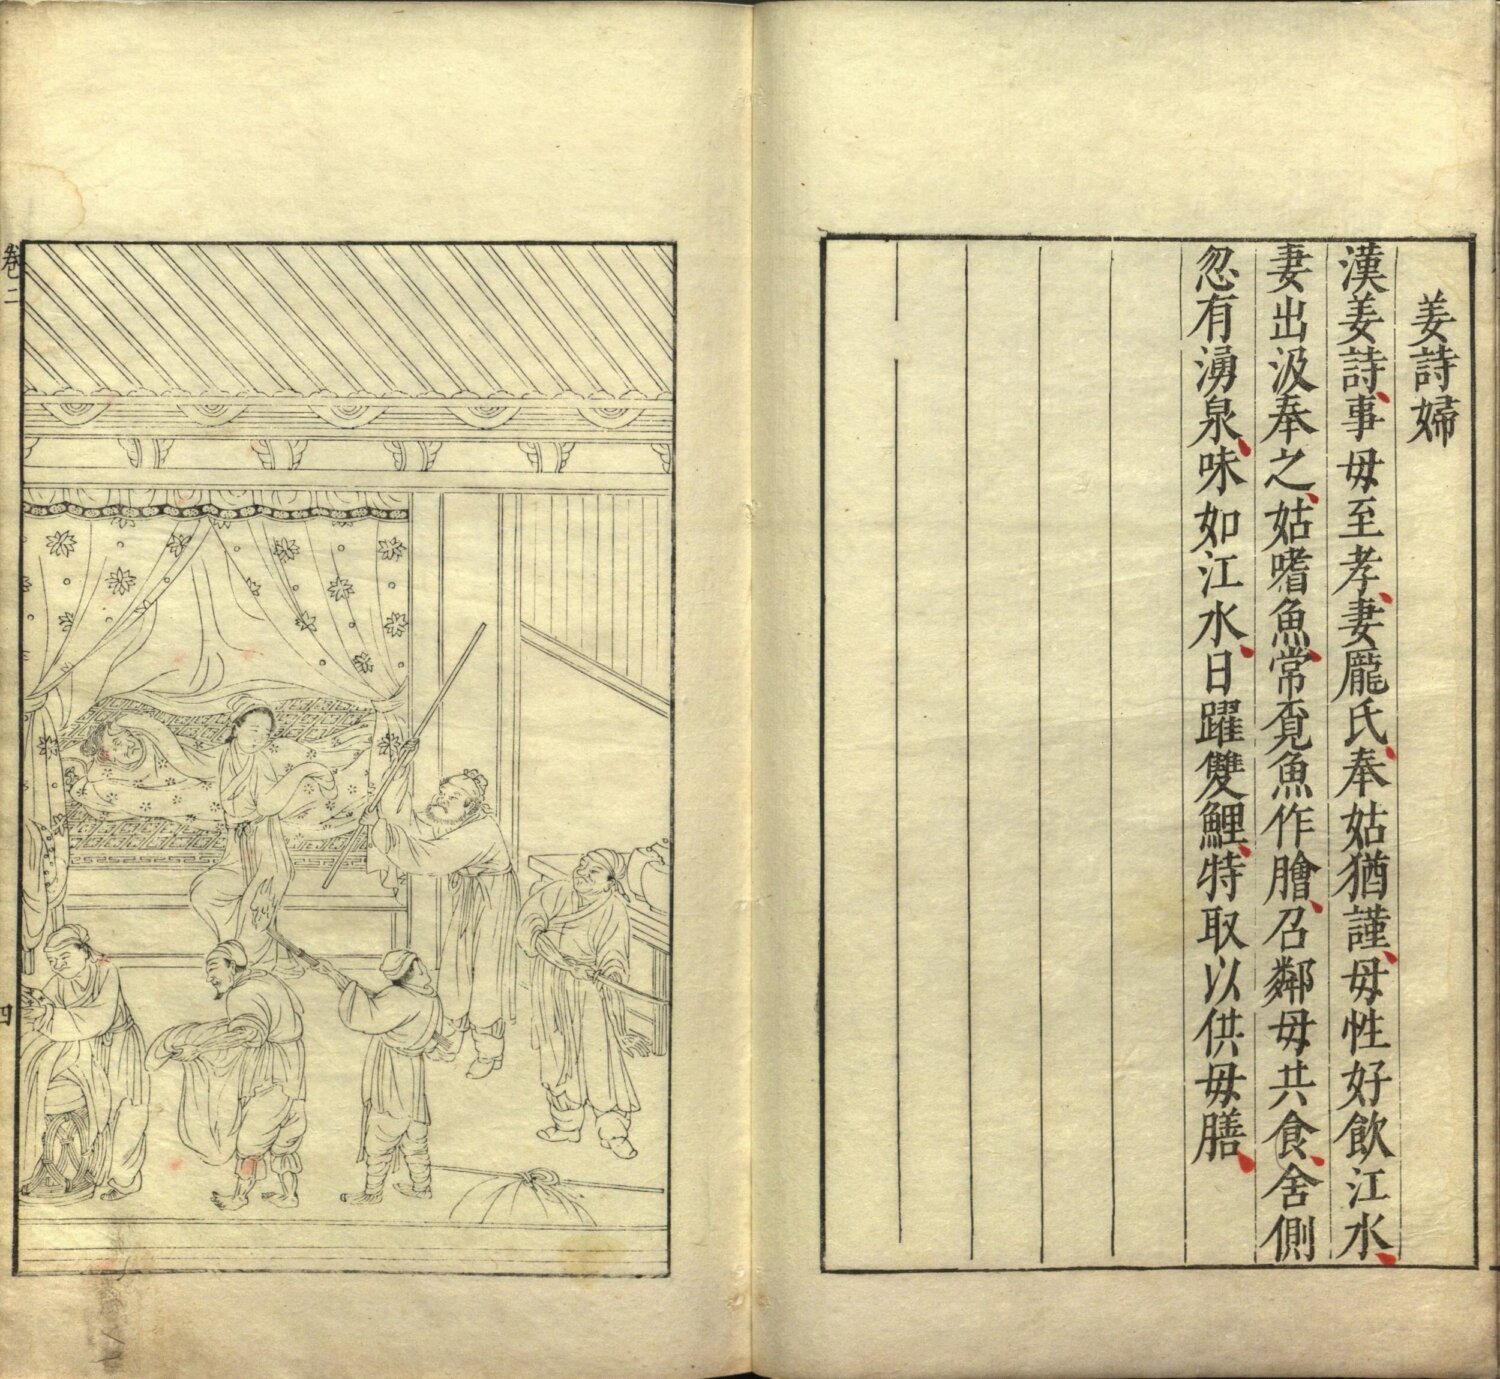 姜詩婦
漢姜詩事毋至孝妻龎氏奉姑猶謹毋性好飲江水
妻出汲奉之姑嗜魚常覔魚作膾召鄰毋共食舍側
忽有湧泉味如江水日躍雙鯉特取以供毋膳
卷二
四